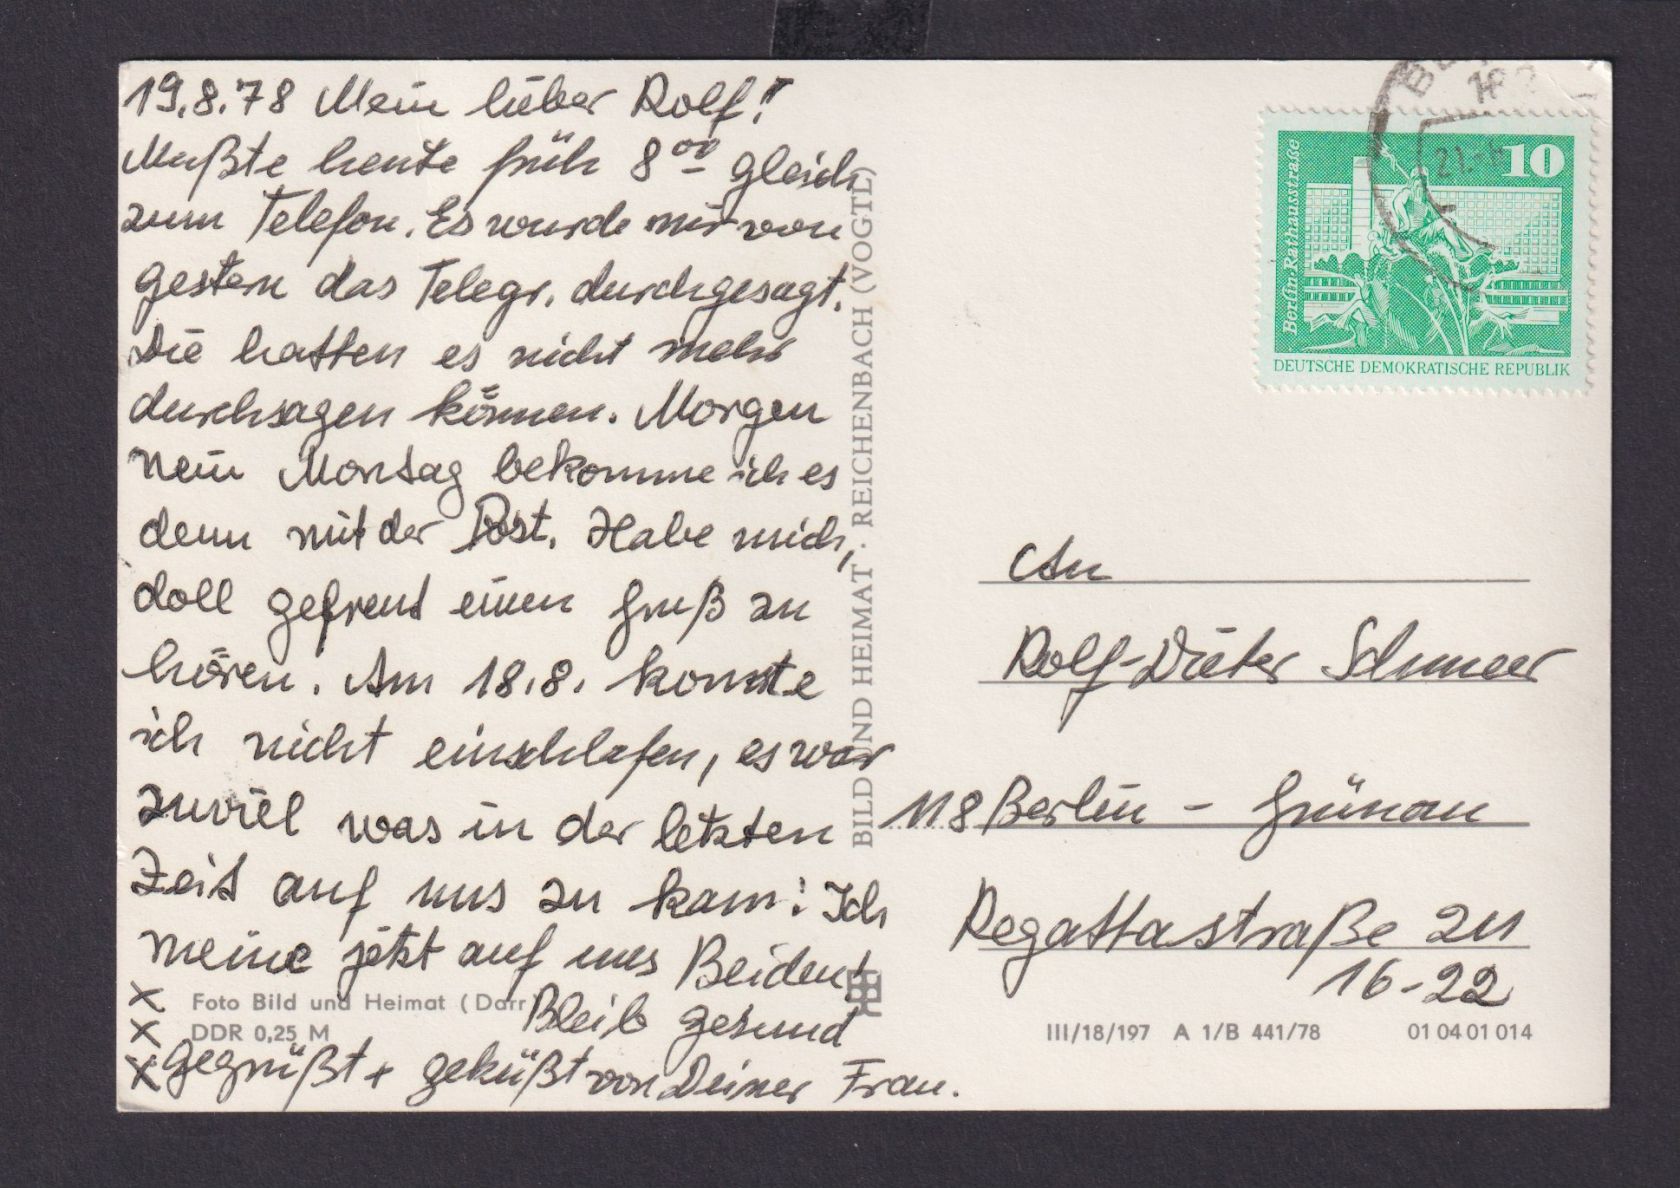 19.8.78 Mein lieber Rolf!
Mußte heute früh 8 00 gleich
zum Telefon. Es wurde mir von
gestern das Telegr. durchgesagt.
Die hatten es nicht mehr
durchsagen können. Morgen
nein Montag bekomme ich es
denn mit der Post. Habe mich,
doll gefreut einen Gruß zu
hören. Am 18.8. konnte
ich nicht einschlafen, es war
zuviel was in der letzten
Zeit auf uns zu kam! Ich
meine jetzt auf uns Beiden!
Bleib gesund
x x x gegrüßt + geküßt von Deiner Frau.
Foto Bild und Heimat (Darr)
DDR 0,25 M
BILD UND HEIMAT · REICHENBACH (VOGTL)
Berlin-Rathausstraße
10
DEUTSCHE DEMOKRATISCHE REPUBLIK
21.
An
Rolf-Dieter Schmeer
118 Berlin - Grünau
Regattastraße
16-22
III/18/197 A 1/B 441/78 01 04 01 014